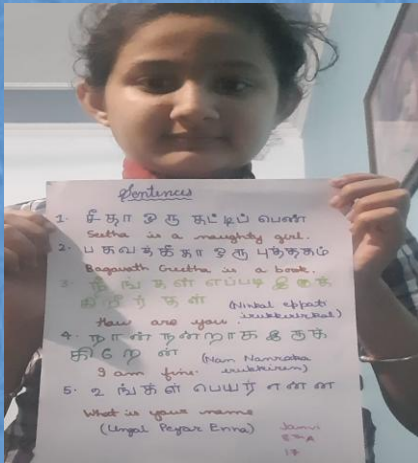 Sentences
1. சீதா ஒரு சுட்டிப் பெண்
Seetha is a naughty girl.
2. பகவத்கீதா ஒரு புத்தகம்
Bagavath Geetha is a book.
3. நீங்கள் எப்படி இருக்
கிறீர்கள் (Ninkal eppati
How are you. irukkirirkal)
4. நான் நன்றாக இருக்
கிறேன் (Nan Nanraka
I am fine. irukkiren)
5. உங்கள் பெயர் என்ன
What is your name
(Ungal Peyar Enna) Janvi
5th A
17